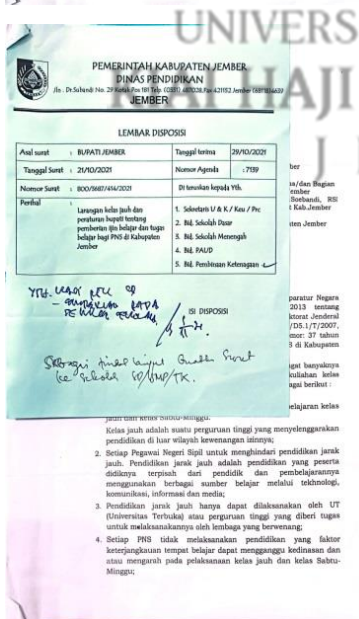 UNIVERS
HAJI
J
PEMERINTAH KABUPATEN JEMBER
DINAS PENDIDIKAN
Jln. Dr.Subandi No. 29 Kotak Pos 181 Telp. (0331) 487028,Fax.421152 Jember
JEMBER
LEMBAR DISPOSISI
Asal surat : BUPATI JEMBER
Tanggal terima 29/10/2021
Tanggal Surat : 21/10/2021
Nomor Agenda : 7139
Nomor Surat : 800/5687/414/2021
Di teruskan kepada Yth.
Perihal :
Larangan kelas jauh dan
peraturan bupati tentang
pemberian ijin belajar dan tugas
belajar bagi PNS di Kabupaten
Jember
1. Sekretaris U & K / Keu / Prc
2. Bid. Sekolah Dasar
3. Bid. Sekolah Menengah
4. Bid. PAUD
5. Bid. Pembinaan Ketenagaan
ISI DISPOSISI
ber
as/dan Bagian
ember
Soebandi, RSI
Kab.Jember
ten Jember
paratur Negara
2013 tentang
ktorat Jenderal
/D5.1/T/2007,
mor: 37 tahun
S di Kabupaten
gat banyaknya
kuliahan kelas
agai berikut :
elajaran kelas
jauh dan kelas Sabtu-Minggu.
Kelas jauh adalah suatu perguruan tinggi yang menyelenggarakan
pendidikan di luar wilayah kewenangan isinnya;
2. Setiap Pegawai Negeri Sipil untuk menghindari pendidikan jarak
jauh. Pendidikan jarak jauh adalah pendidikan yang peserta
didiknya terpisah dari pendidik dan pembelajarannya
menggunakan berbagai sumber belajar melalui tekhnologi,
komunikasi, informasi dan media;
3. Pendidikan jarak jauh hanya dapat dilaksanakan oleh UT
(Universitas Terbuka) atau perguruan tinggi yang diberi tugas
untuk melaksanakannya oleh lembaga yang berwenang;
4. Setiap PNS tidak melaksanakan pendidikan yang faktor
keterjangkauan tempat belajar dapat mengganggu kedinasan dan
atau mengarah pada pelaksanaan kelas jauh dan kelas Sabtu-
Minggu;